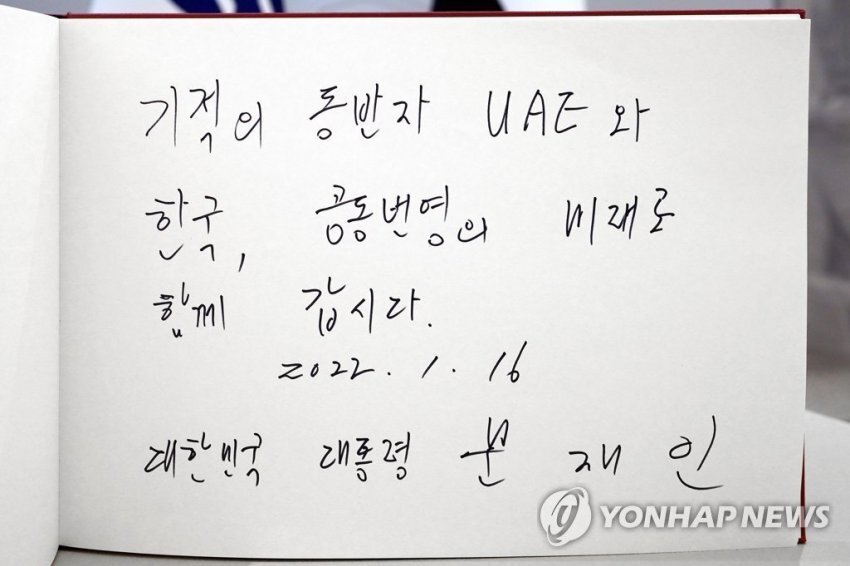 기적의 동반자 UAE와
한국, 공동번영의 미래로
함께 갑시다.
2022. 1. 16
대한민국 대통령 문재인
YONHAP NEWS